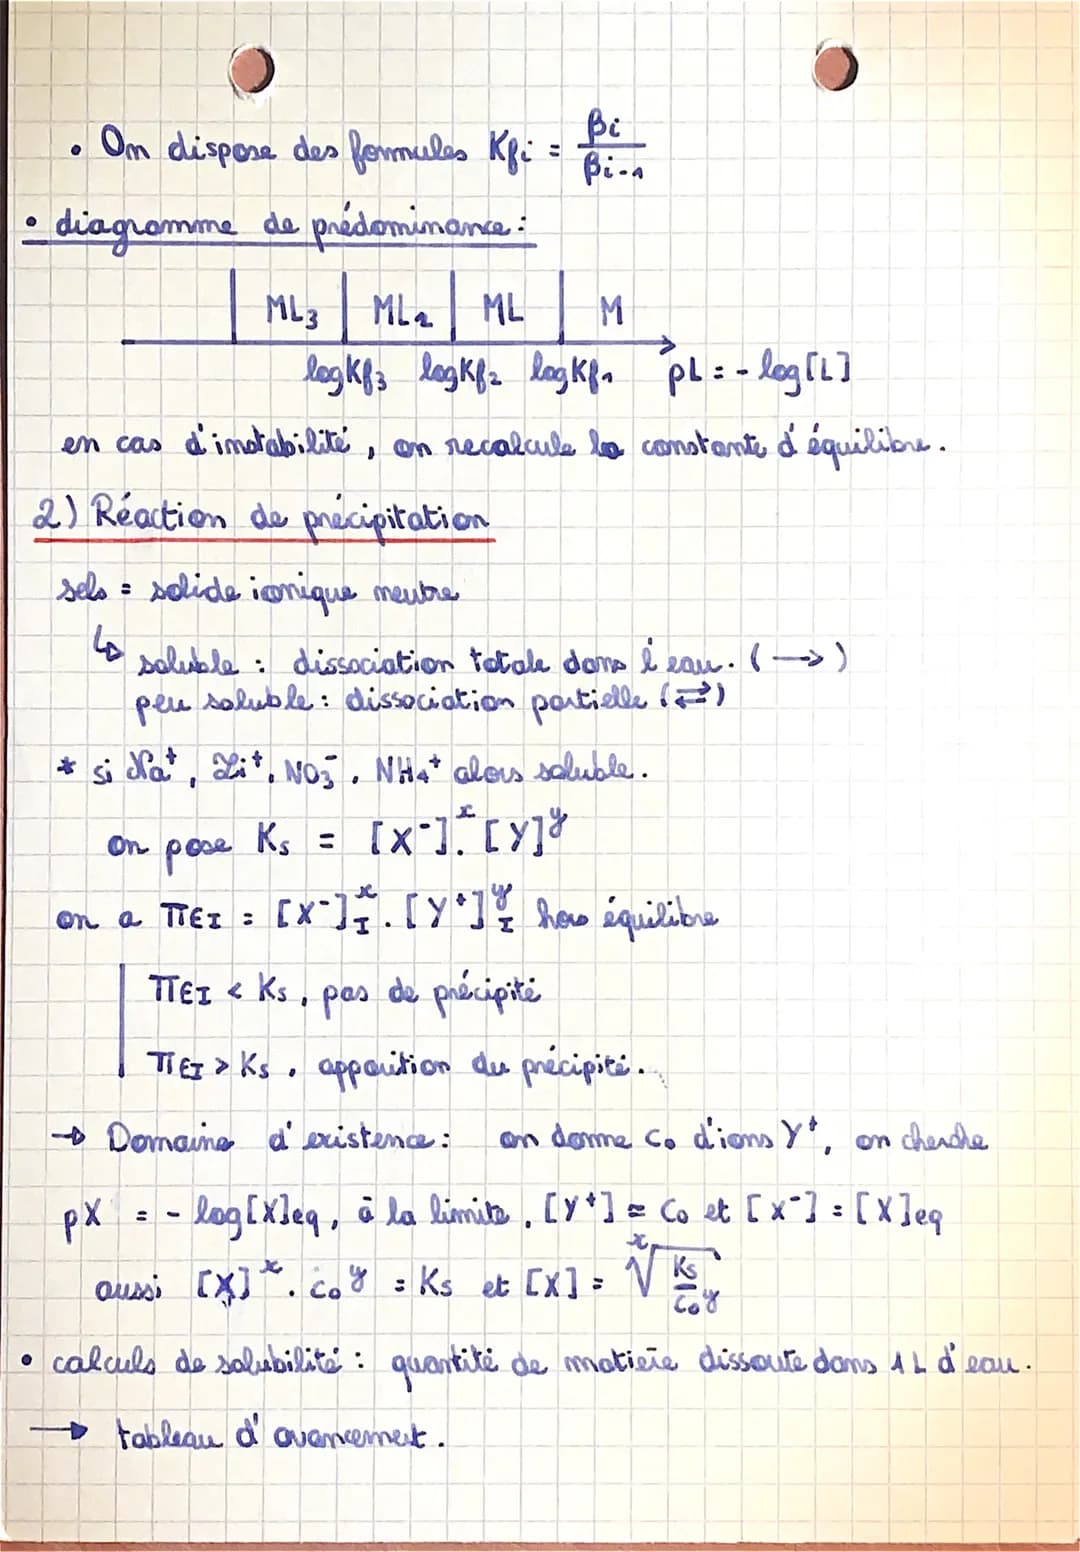 • On dispose des formules Kfi = βi / βi-1
• diagramme de prédominance :
ML3 | ML2 | ML | M
log Kf3 log Kf2 log Kf1 pL = - log [L]
en cas d'instabilité, on recalcule la constante d'équilibre.
2) Réaction de précipitation
sels = solide ionique neutre
↳ soluble : dissociation totale dans l'eau. (→)
peu soluble : dissociation partielle (⇄)
* si Na⁺, Li⁺, NO₃⁻, NH₄⁺ alors soluble.
on pose Ks = [X⁻]ˣ. [Y]ʸ
on a πEI = [X⁻]ˣI . [Y⁺]ʸI hors équilibre
πEI < Ks, pas de précipité
πEI > Ks, apparition du précipité.
→ Domaine d'existence : on donne C₀ d'ions Y⁺, on cherche
pX = - log[X]eq, à la limite, [Y⁺] = C₀ et [X⁻] = [X]eq
aussi [X]ˣ . C₀ʸ = Ks et [X] = ˣ√(Ks / C₀ʸ)
• calculs de solubilité : quantité de matière dissoute dans 1L d'eau.
→ tableau d'avancement.